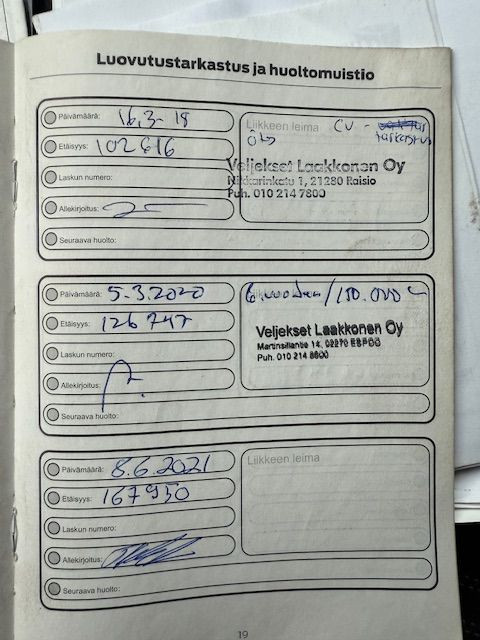 Luovutustarkastus ja huoltomuistio
Päivämäärä: 16.3-18
Etäisyys: 102616
Laskun numero:
Allekirjoitus:
Seuraava huolto:
Liikkeen leima CV -
tarkastus
öljy
Veljekset Laakkonen Oy
Nikkarinkatu 1, 21280 Raisio
Puh. 010 214 7800
Päivämäärä: 5.3.2020
Etäisyys: 126747
Laskun numero:
Allekirjoitus:
Seuraava huolto:
6 vuoden / 150.000
Veljekset Laakkonen Oy
Martinsillantie 14, 02270 ESPOO
Puh. 010 214 8800
Päivämäärä: 8.6.2021
Etäisyys: 167950
Laskun numero:
Allekirjoitus:
Seuraava huolto:
Liikkeen leima
19